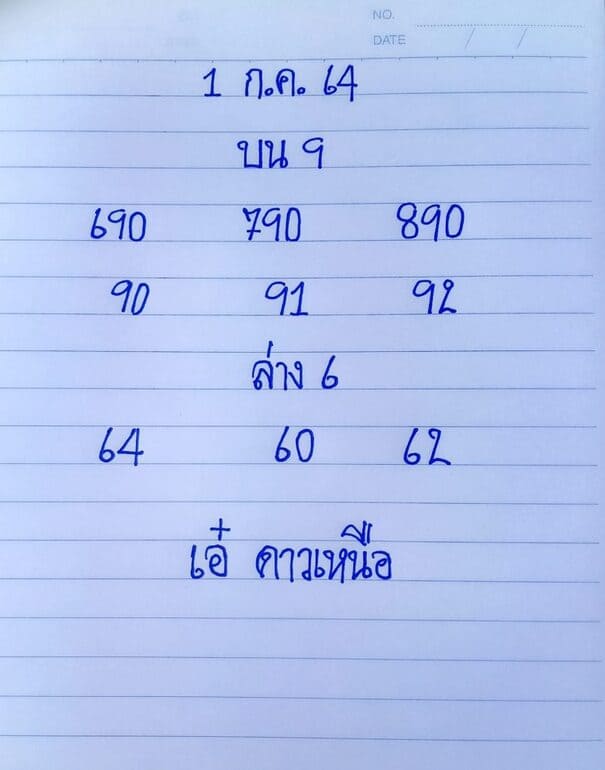 NO.
DATE / /
1 ก.ค. 64
บน 9
690 790 890
90 91 92
ล่าง 6
64 60 62
เอ๋ ดาวเหนือ